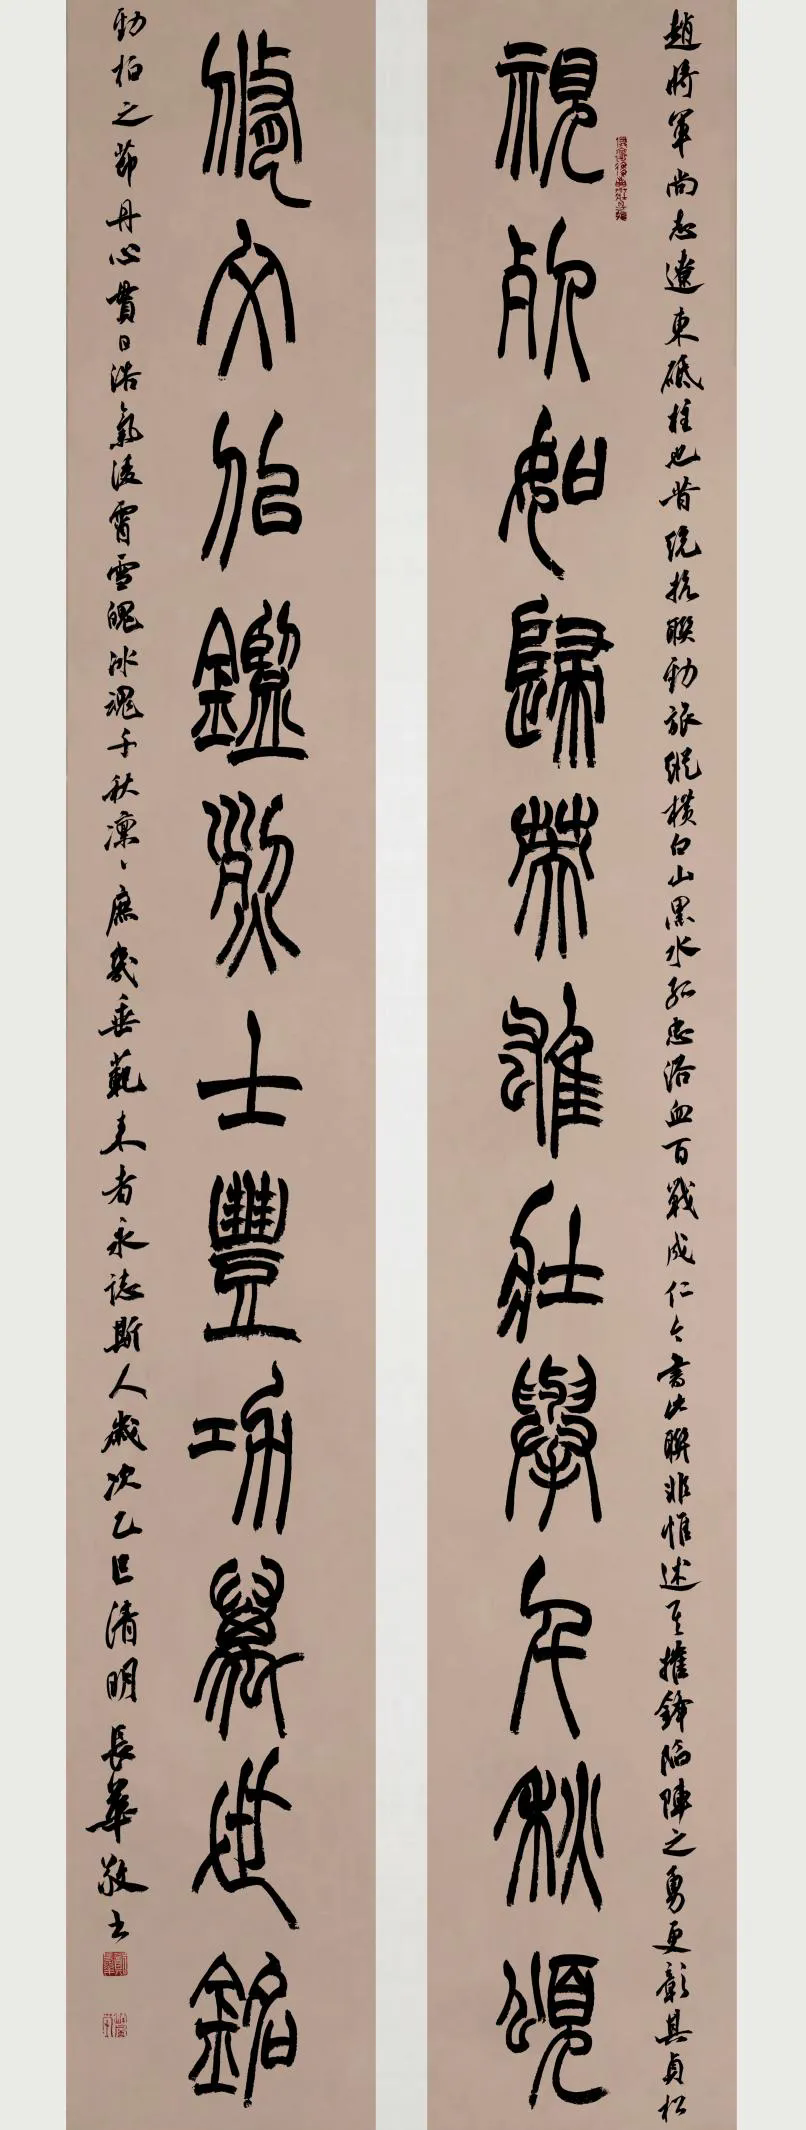 趙將軍尚志遼東砥柱也昔統抗聯勁旅縱橫白山黑水孤忠浴血百戰成仁今書此聯非惟述其摧鋒陷陣之勇更彰其貞松
視死如歸英雄壯舉千秋頌
文似鑑烈士豐功萬世銘
勁柏之節丹心貫日浩氣凌霄雪魄冰魂千秋凜凜庶幾垂範來者永誌斯人歲次乙巳清明長華敬書